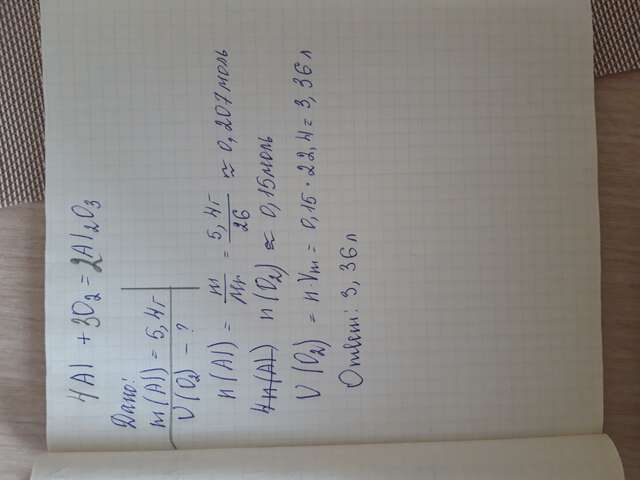 4Al + 3O₂ = 2Al₂O₃
Дано:
m(Al) = 5,4г
V(O₂) - ?
n(Al) = m/Mr = 5,4г/26 ≈ 0,207моль
4n(Al) n(O₂) ≈ 0,15моль
V(O₂) = n·Vm = 0,15·22,4 = 3,36л
Ответ: 3,36л